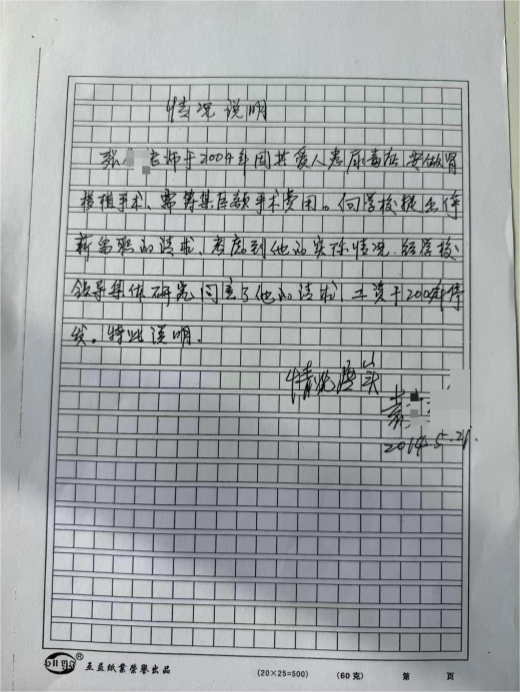 情况说明
老师于2004年因其爱人患尿毒症,要做肾
移植手术、需筹集巨额手术费用。向学校提出停
薪留职的请求、考虑到他的实际情况.经学校
领导集体研究同意了他的请求,工资于2004年停
发。特此说明.
情况属实
袁
2014.5.21.
互益纸业荣誉出品
(20×25=500)
(60克)
第 页